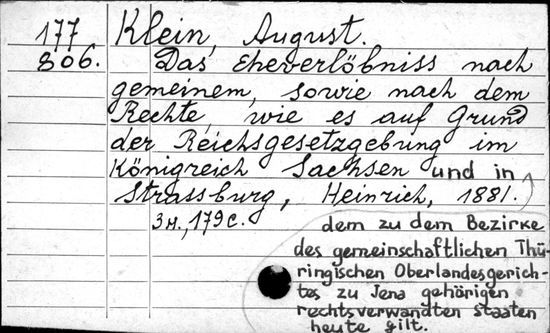 177 Klein, August.
806. Das Eheverlöbniss nach
gemeinem, sowie nach dem
Rechte, wie es auf Grund
der Reichsgesetzgebung im
Königreich Sachsen und in
Strassburg, Heinrich, 1881.
3 н., 179 с. dem zu dem Bezirke
des gemeinschaftlichen Thü-
ringischen Oberlandesgerich-
tes zu Jena gehörigen
rechtsverwandten Staaten
heute gilt.